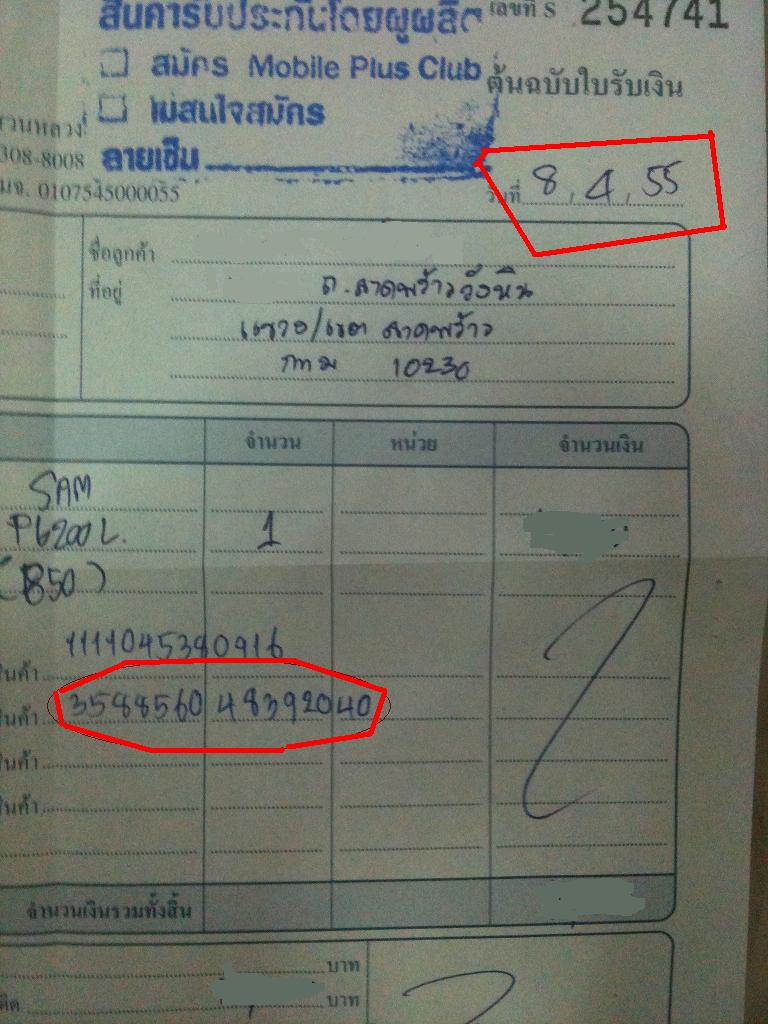 สินค้ารับประกันโดยผู้ผลิต
เลขที่ S 254741
สมัคร Mobile Plus Club
ต้นฉบับใบรับเงิน
ไม่สนใจสมัคร
วนหลวง
308-8008
ลายเซ็น
มจ. 0107545000055
วันที่ 8, 4, 55
ชื่อลูกค้า
ที่อยู่ ถ.ลาดพร้าววังหิน
แขวง/เขต ลาดพร้าว
กทม 10230
จำนวน หน่วย จำนวนเงิน
SAM
P6200L. 1
(850)
1111045380916
สินค้า
สินค้า 3588560 483920 40
สินค้า
สินค้า
จำนวนเงินรวมทั้งสิ้น
บาท
บาท